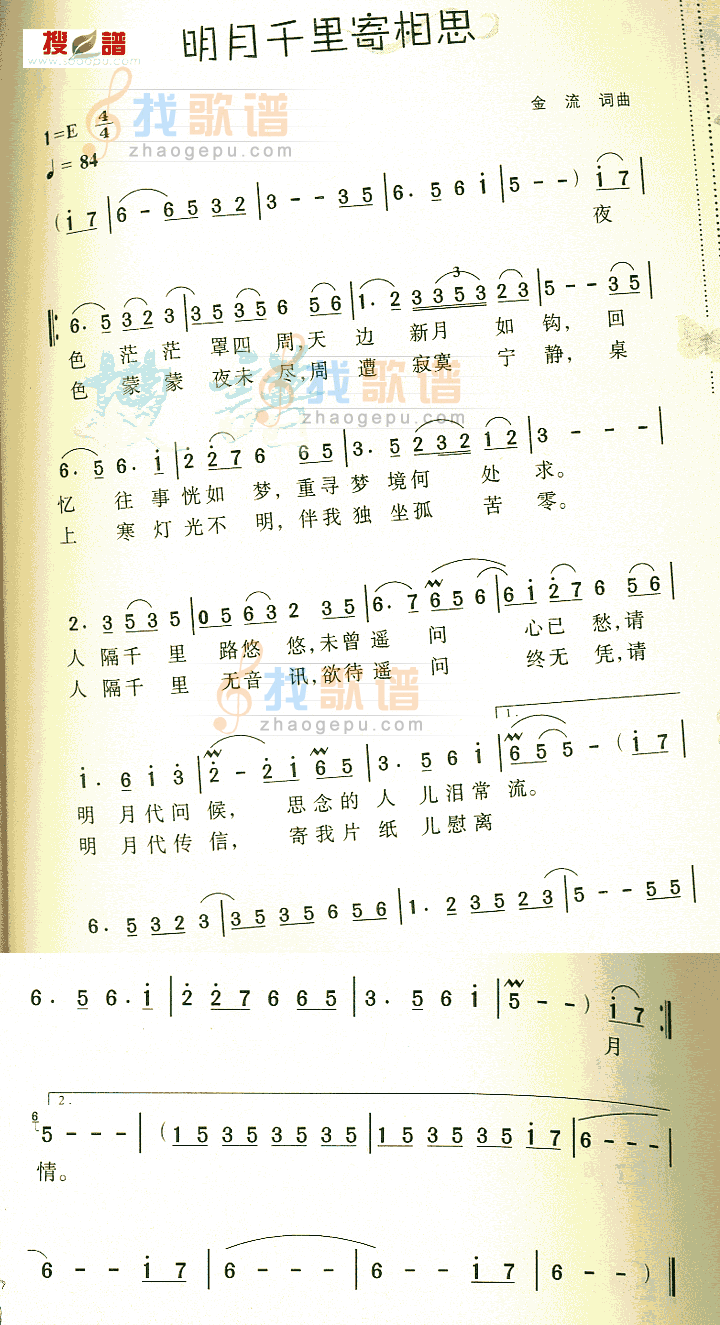 搜谱
www.sooopu.com
明月千里寄相思
找歌谱
zhaogepu.com
金 流 词曲
1=E 4/4
♩= 84
(i 7 | 6 - 6 5 3 2 | 3 - - 3 5 | 6· 5 6 i | 5 - - ) i 7 |
夜
‖: 6· 5 3 2 3 | 3 5 3 5 6 5 6 | 1· 2 3 3 5 3 2 3 | 5 - - 3 5 |
色 茫 茫 罩四 周,天 边 新月 如 钩, 回
色 蒙 蒙 夜未 尽,周 遭 寂寞 宁 静, 桌
找歌谱
zhaogepu.com
6· 5 6· i | 2 2 7 6 6 5 | 3· 5 2 3 2 1 2 | 3 - - - |
忆 往 事 恍如 梦, 重寻 梦 境何 处 求。
上 寒 灯 光不 明, 伴我 独 坐孤 苦 零。
2· 3 5 3 5 | 0 5 6 3 2 3 5 | 6· 7 6 5 6 | 6 i 2 7 6 5 6 |
人 隔千 里 路悠 悠,未曾 遥 问 心已 愁,请
人 隔千 里 无音 讯,欲待 遥 问 终无 凭,请
找歌谱
zhaogepu.com
1.
i· 6 i 3 | 2 - 2 i 6 5 | 3· 5 6 i | 6 5 5 - ( i 7 |
明 月代问 候, 思 念的 人 儿泪常 流。
明 月代传 信, 寄 我片 纸 儿慰 离
6· 5 3 2 3 | 3 5 3 5 6 5 6 | 1· 2 3 5 2 3 | 5 - - 5 5 |
6· 5 6· i | 2 2 7 6 6 5 | 3· 5 6 i | 5 - - ) i 7 :‖
月
2.
6 5 - - - | ( 1 5 3 5 3 5 3 5 | 1 5 3 5 3 5 i 7 | 6 - - - |
情。
6 - - i 7 | 6 - - - | 6 - - i 7 | 6 - - ) ‖